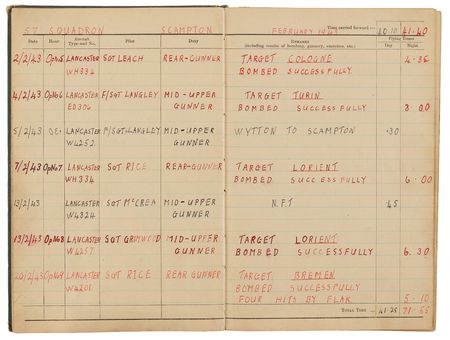 57 SQUADRON SCAMPTON FEBRUARY 1943 Time carried forward:— 40·10 41·40
Date Hour Aircraft Type and No. Pilot Duty REMARKS (including results of bombing, gunnery, exercises, etc.) Flying Times Day Night
2/2/43 LANCASTER SGT LEACH REAR-GUNNER TARGET COLOGNE 4·35
WH334 BOMBED SUCCESSFULLY
4/2/43 LANCASTER F/SGT LANGLEY MID-UPPER TARGET TURIN
ED306 GUNNER BOMBED SUCCESSFULLY 8·00
5/2/43 LANCASTER F/SGT LANGLEY MID-UPPER WYTTON TO SCAMPTON ·30
W4252 GUNNER
7/2/43 LANCASTER SGT RICE REAR-GUNNER TARGET LORIENT
WH334 BOMBED SUCCESSFULLY 6·00
13/2/43 LANCASTER SGT McCREA MID-UPPER N.F.T ·45
GUNNER
13/2/43 LANCASTER SGT GRIMWOOD MID-UPPER TARGET LORIENT
W4257 GUNNER BOMBED SUCCESSFULLY 6·30
20/2/43 LANCASTER SGT RICE REAR GUNNER TARGET BREMEN
W4201 BOMBED SUCCESSFULLY
FOUR HITS BY FLAK 5·10
TOTAL TIME 41·25 71·55